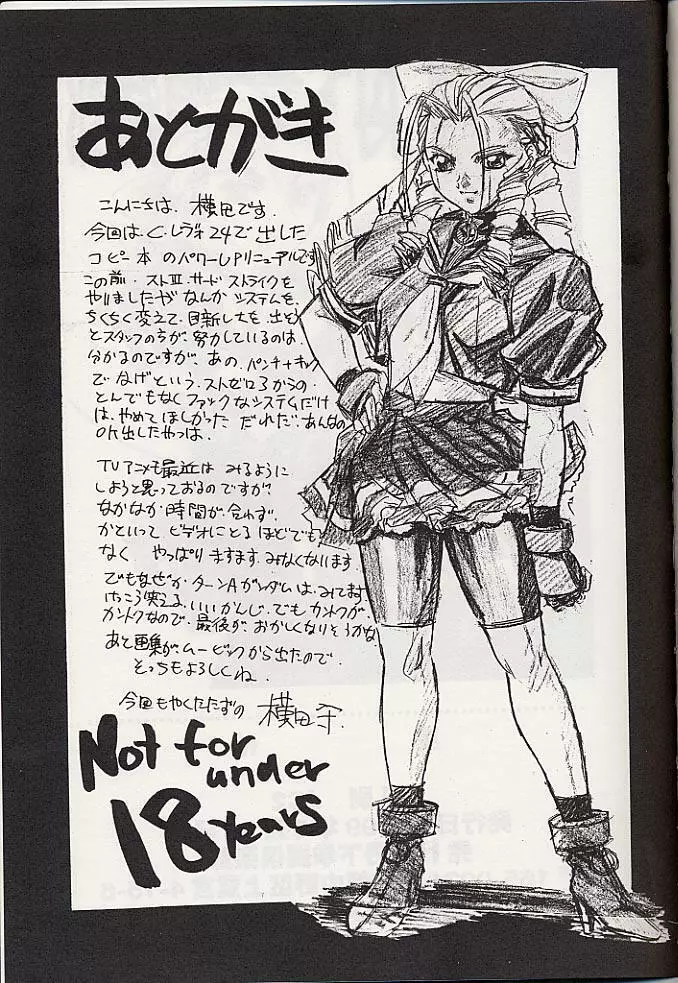 あとがき
こんにちは、横田です。
今回は、C.レヴォ24で出した
コピー本のパワーUPリニューアルです
この前、ストⅢ.サードストライクを
やりましたがなんかシステムを、
ちくちく変えて、目新しさを、出そう
とスタッフの方が、努力しているのは、
分かるのですが、あの、パンチ+キック
でなげという、ストゼロ3からの、
とんでもなくファックなシステムだけ
は、やめてほしかった だれだ、あんなの
OK出したやつは、
TVアニメも最近は みるように
しようと思っておるのですが、
なかなか時間が、合わず、
かといって ビデオにとる ほどでも
なく やっぱり ますます、みなくなります
でもなぜか、ターンAガンダムは、みてます
けっこう笑える、いいかんじ、でも カントクが、
カントクなので、最後が、おかしくなりそうかな
あと画集が、ムービックから出たので、
そっちもよろしくね.
今回もやくたたずの 横田守.
Not for
under
18 years